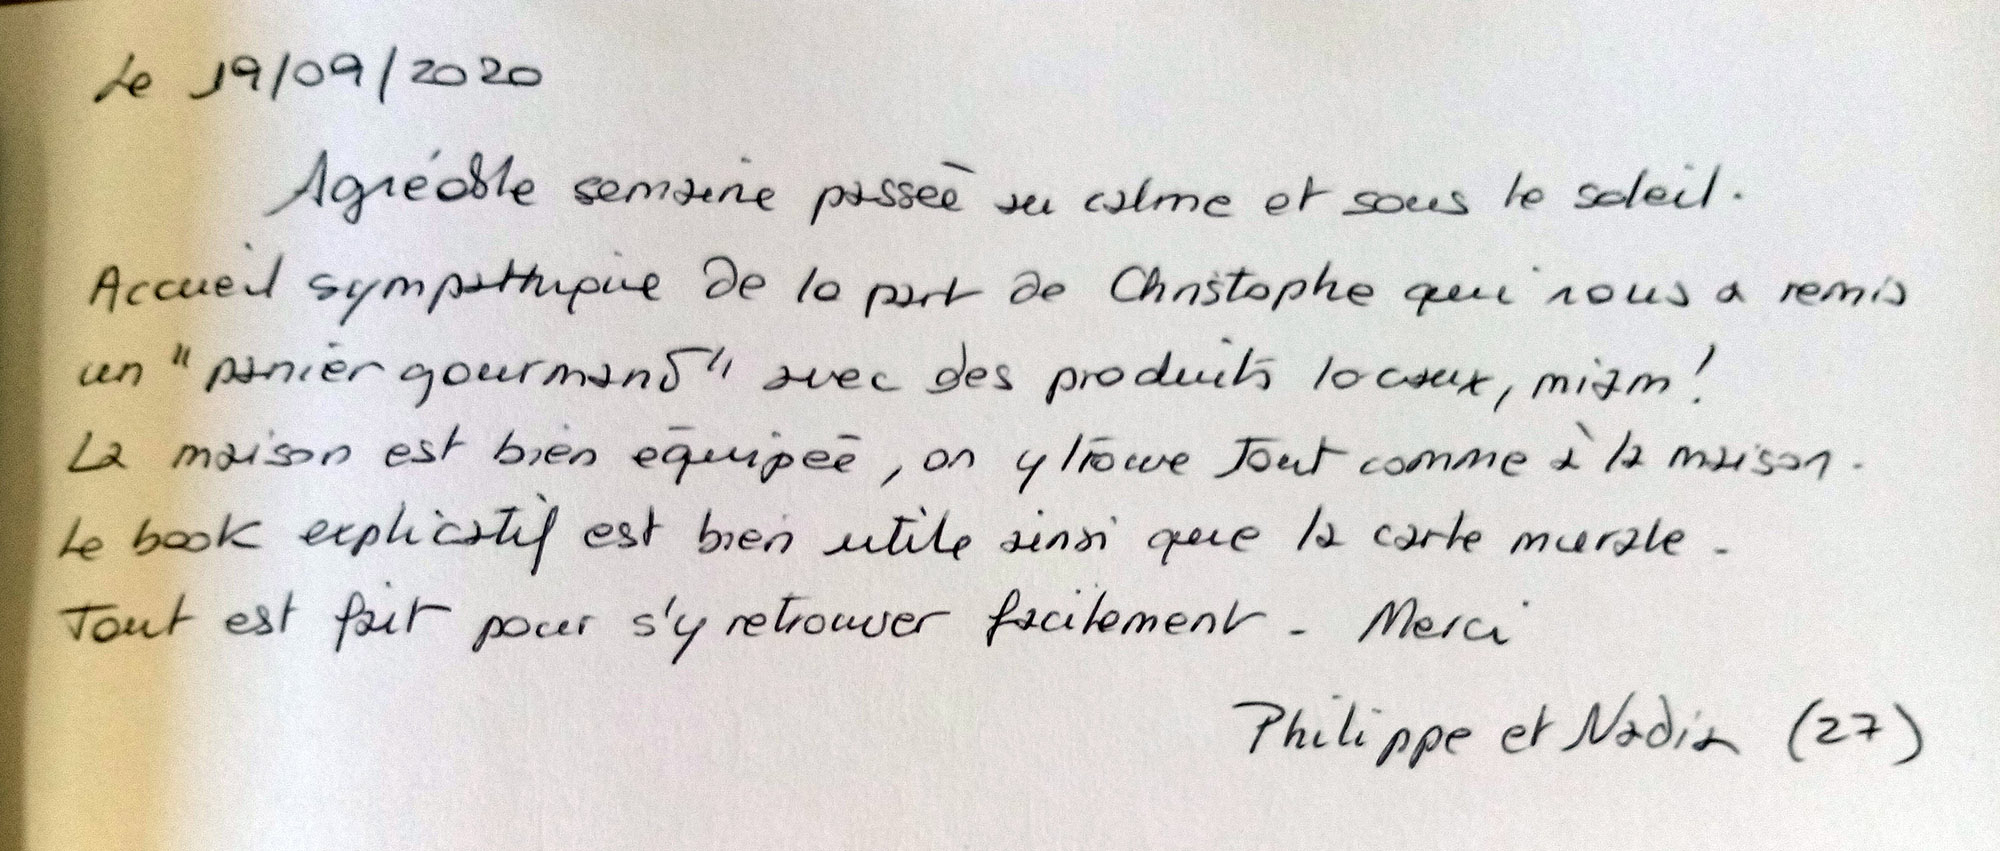 Le 19/09/2020
Agréable semaine passée au calme et sous le soleil.
Accueil sympathique de la part de Christophe qui nous a remis
un "panier gourmand" avec des produits locaux, miam !
La maison est bien équipée, on y trouve tout comme à la maison.
Le book explicatif est bien utile ainsi que la carte murale.
Tout est fait pour s'y retrouver facilement. Merci
Philippe et Nadia (27)